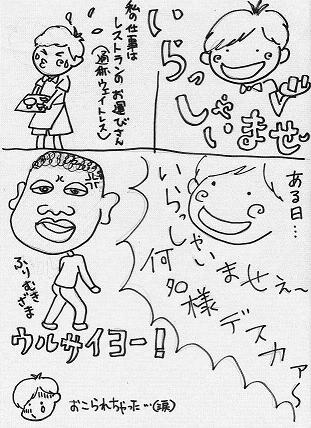 いらっしゃいませ
私の仕事は
レストランのお運びさん
(通称ウェイトレス)
ある日…
いらっしゃいませぇ〜
何名様デスカァ〜
ふりむきざま
ウルサイヨー!
おこられちゃった…(涙)